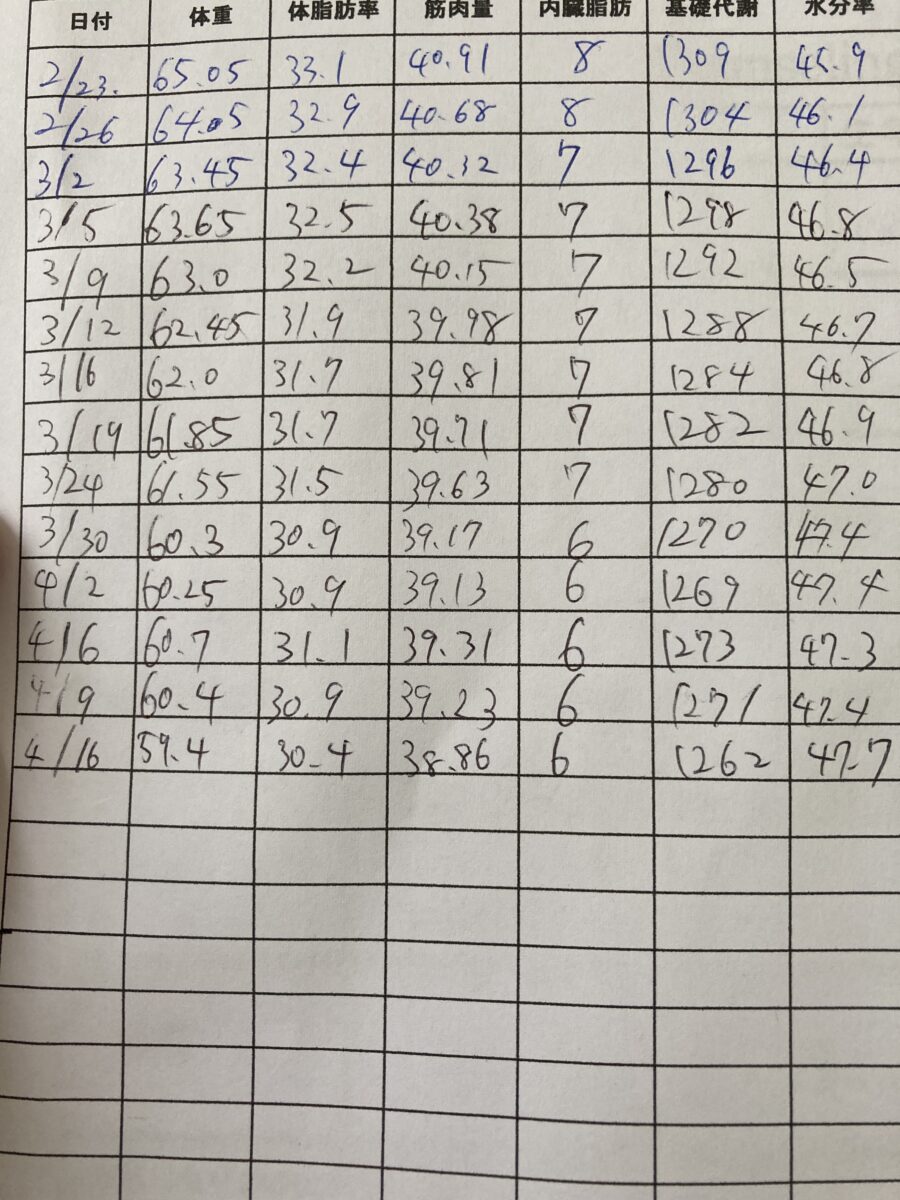 日付 体重 体脂肪率 筋肉量 内臓脂肪 基礎代謝 水分率
2/23. 65.05 33.1 40.91 8 1309 45.9
2/26 64.05 32.9 40.68 8 1304 46.1
3/2 63.45 32.4 40.32 7 1296 46.4
3/5 63.65 32.5 40.38 7 1298 46.8
3/9 63.0 32.2 40.15 7 1292 46.5
3/12 62.45 31.9 39.98 7 1288 46.7
3/16 62.0 31.7 39.81 7 1284 46.8
3/19 61.85 31.7 39.71 7 1282 46.9
3/24 61.55 31.5 39.63 7 1280 47.0
3/30 60.3 30.9 39.17 6 1270 47.4
4/2 60.25 30.9 39.13 6 1269 47.4
4/6 60.7 31.1 39.31 6 1273 47.3
4/9 60.4 30.9 39.23 6 1271 47.4
4/16 59.4 30.4 38.86 6 1262 47.7